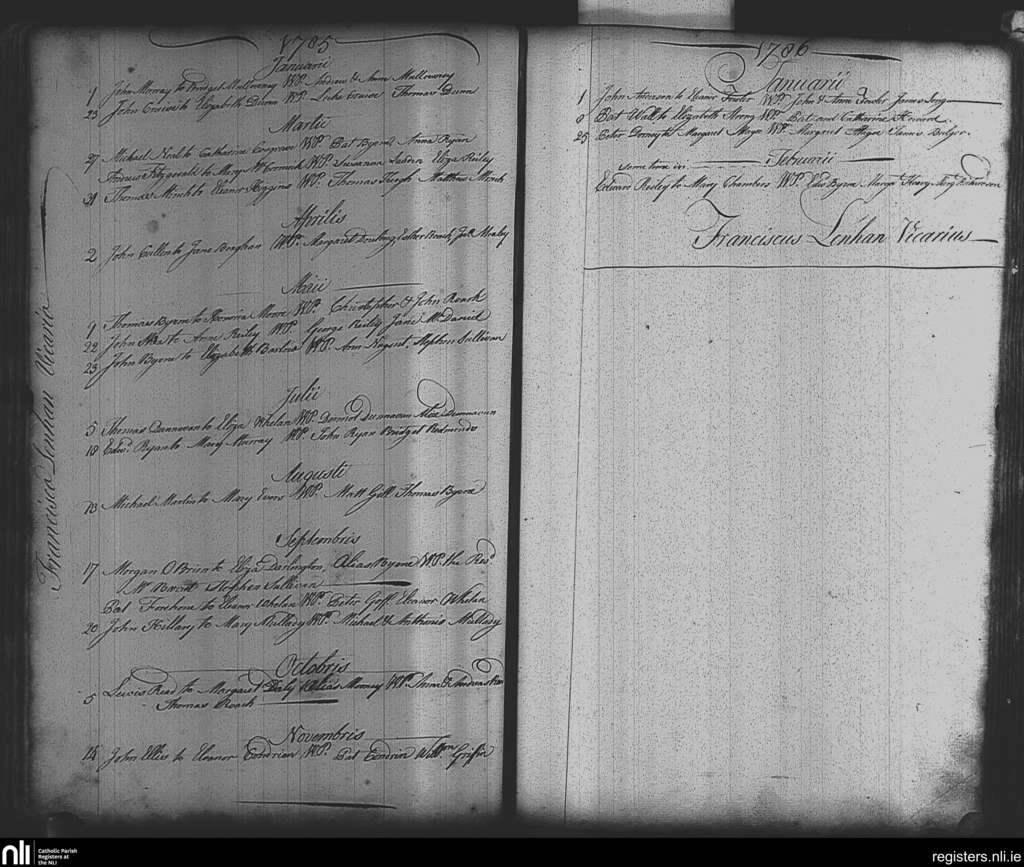 1785
Januarii
9 John Murray to Bridget Mullowney WP. Andrew & Anne Mullowney
23 John to Elizabeth Dunn WP Luke Thomas Dunn
Martii
27 Michael Neal to Catharine Cosgrave WP. Pat Byrne Anna Ryan
Thomas Fitzgerald to Mary McCormick WP. Susanna Eliza Reiley
31 Thomas Minch to Eleanor Higgins WP. Thomas Matthew Minch
Aprilis
2 John Cullen to Jane WP. Margaret Dowling Esther Roach Jno. Mealy
Maii
9 Thomas Byrne to Honoria Moore WP. Christopher & John Roach
22 John Shea to Anne Reiley WP. George Reiley Jane McDaniel
23 John Byrne to Elizabeth WP. Ann Nugent, Stephen Sullivan
Julii
5 Thomas Dunnavan to Eliza Whelan WP. Dermot Dunnavan Dunnavan
18 Edwd. Ryan to Mary Murray WP. John Ryan Bridget Redmonds
Augusti
13 Michael Martin to Mary Evers WP. Matt Gill Thomas Byrne
Septembris
17 Morgan O Brien to Eliza Darlington, Alias Byrne WP. the Revd.
Mr. Stephen Sullivan
Pat to Eleanor Whelan WP. Peter Goff Eleanor Whelan
20 John Hillary to Mary Mullady WP. Michael & Mullady
Octobris
5 Lewis Read to Margaret Daly Alias Mooney WP. Anna & Andreas
Thomas Roach
Novembris
14 John Ellis to Eleanor WP. Pat Willm. Griffin
Francisco Lenhan Vicario
1786
Januarii
1 John Anderson to Eleanor Fowler WP. John & Anne Fowler James
8 Pat Wall to Elizabeth Strong WP. Pat and Catharine
25 Peter to Margaret Magee WP. Margaret Magee James Bolger
same time in Februarii
Edward Resley to Mary Chambers WP. Edw Byrne Margt. Mary
Franciscus Lenhan Vicarius
nli
Catholic Parish
Registers at
the NLI
registers.nli.ie